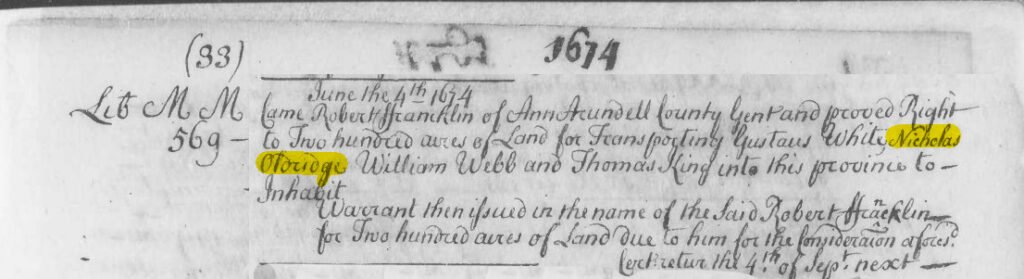 (33)
1674
Lib M M
569 —
June the 4th 1674
Came Robert ffrancklin of AnnArundell County Gent and proved Right
to Two hundred acres of Land for Transporting Gustavus White Nicholas
Oldridge William Webb and Thomas King into this province to —
Inhabit
Warrant then issued in the name of the Said Robert ffrancklin —
for Two hundred acres of Land due to him for the Consideracon afores.d
Cert retur the 4.th of Sep.t next —